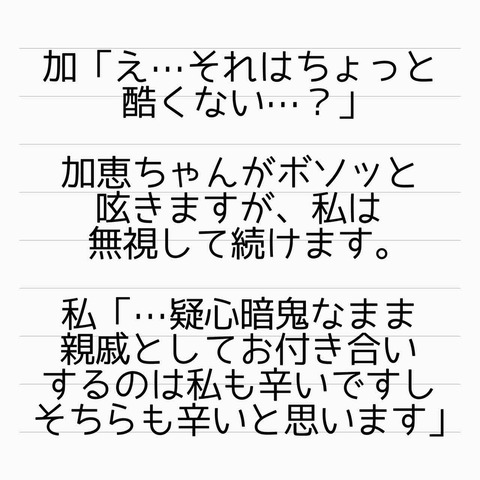 加「え…それはちょっと
酷くない…？」
加恵ちゃんがボソッと
呟きますが、私は
無視して続けます。
私「…疑心暗鬼なまま
親戚としてお付き合い
するのは私も辛いですし
そちらも辛いと思います」